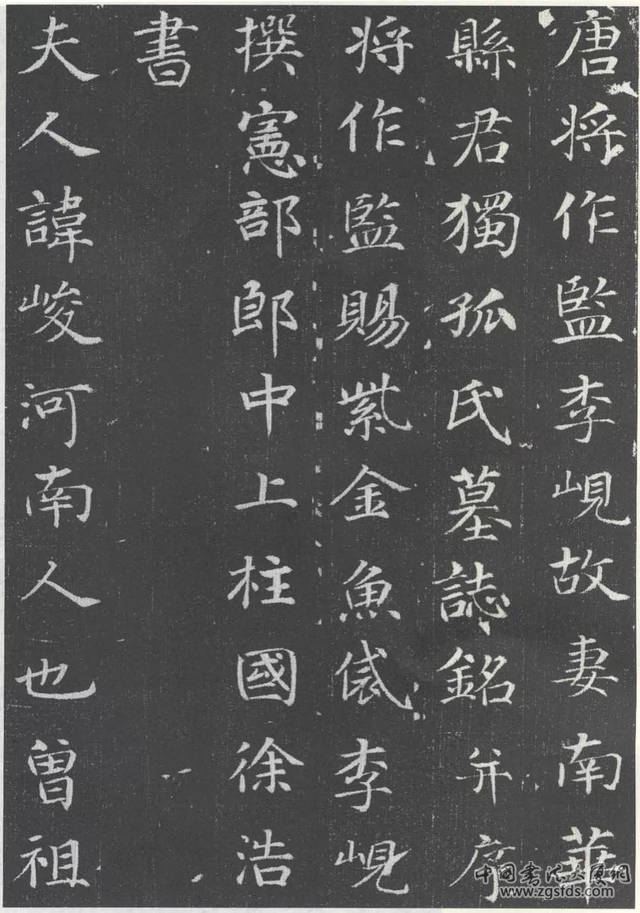 唐将作監李峴故妻南華
縣君獨孤氏墓誌銘并序
将作監賜紫金魚袋李峴
撰憲部郎中上柱國徐浩
書
夫人諱峻河南人也曽祖
中国书法大厦网
www.zgsfds.com